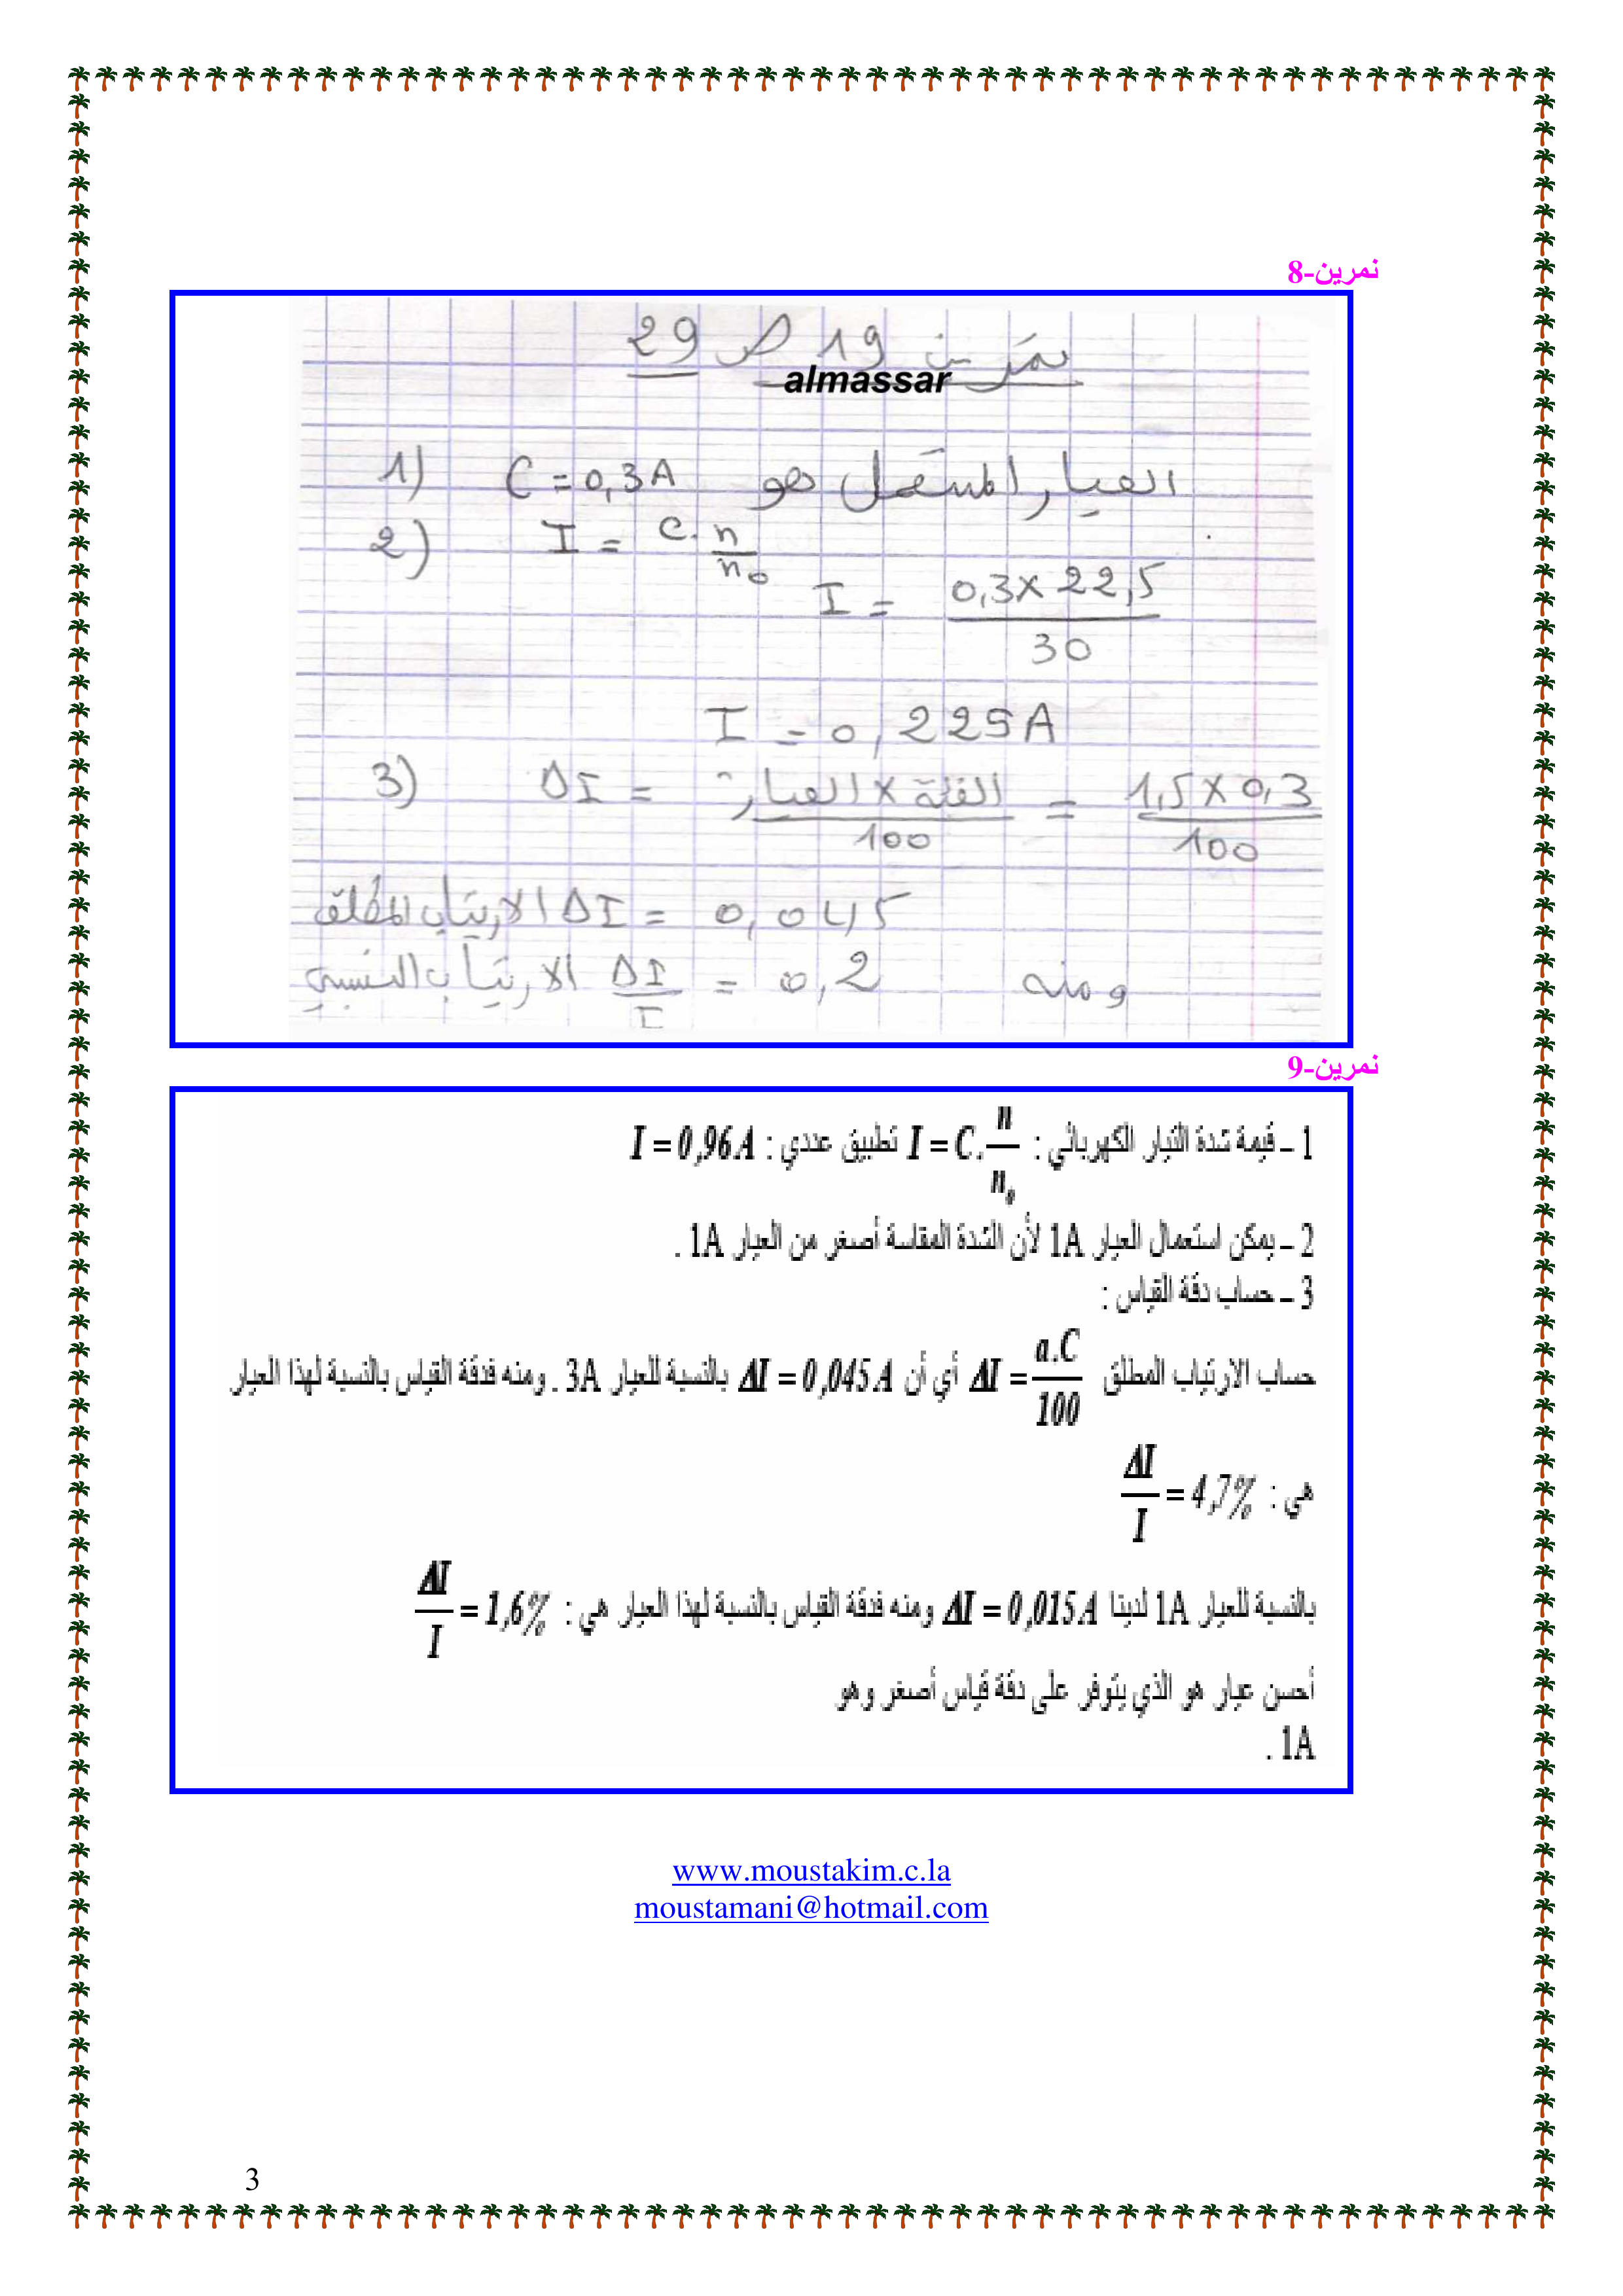 تمرين-8
تمرين 19 ص 29
almassar
1) العيار المستعمل هو C = 0,3A
2) I = C.n/n₀
I = 0,3×22,5/30
I = 0,225A
3) ΔI = الفئة × العيار/100 = 1,5×0,3/100
ΔI = 0,045 الارتياب المطلق
ومنه ΔI/I = 0,2 الارتياب النسبي
تمرين-9
1 – قيمة شدة التيار الكهربائي : I = C.n/n₀ تطبيق عددي : I = 0,96A
2 – يمكن استعمال العيار 1A لأن الشدة المقاسة أصغر من العيار 1A .
3 – حساب دقة القياس :
حساب الارتياب المطلق ΔI = a.C/100 أي أن ΔI = 0,045A بالنسبة للعيار 3A . ومنه فدقة القياس بالنسبة لهذا العيار
هي : ΔI/I = 4,7%
بالنسبة للعيار 1A لدينا ΔI = 0,015A ومنه فدقة القياس بالنسبة لهذا العيار هي : ΔI/I = 1,6%
أحسن عيار هو الذي يتوفر على دقة قياس أصغر وهو
1A .
www.moustakim.c.la
moustamani@hotmail.com
3